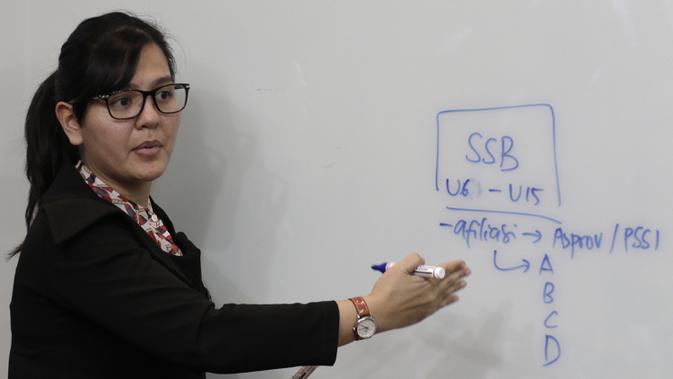 SSB
U6 - U15
- afiliasi → Asprov / PSSI
↳ A
B
C
D